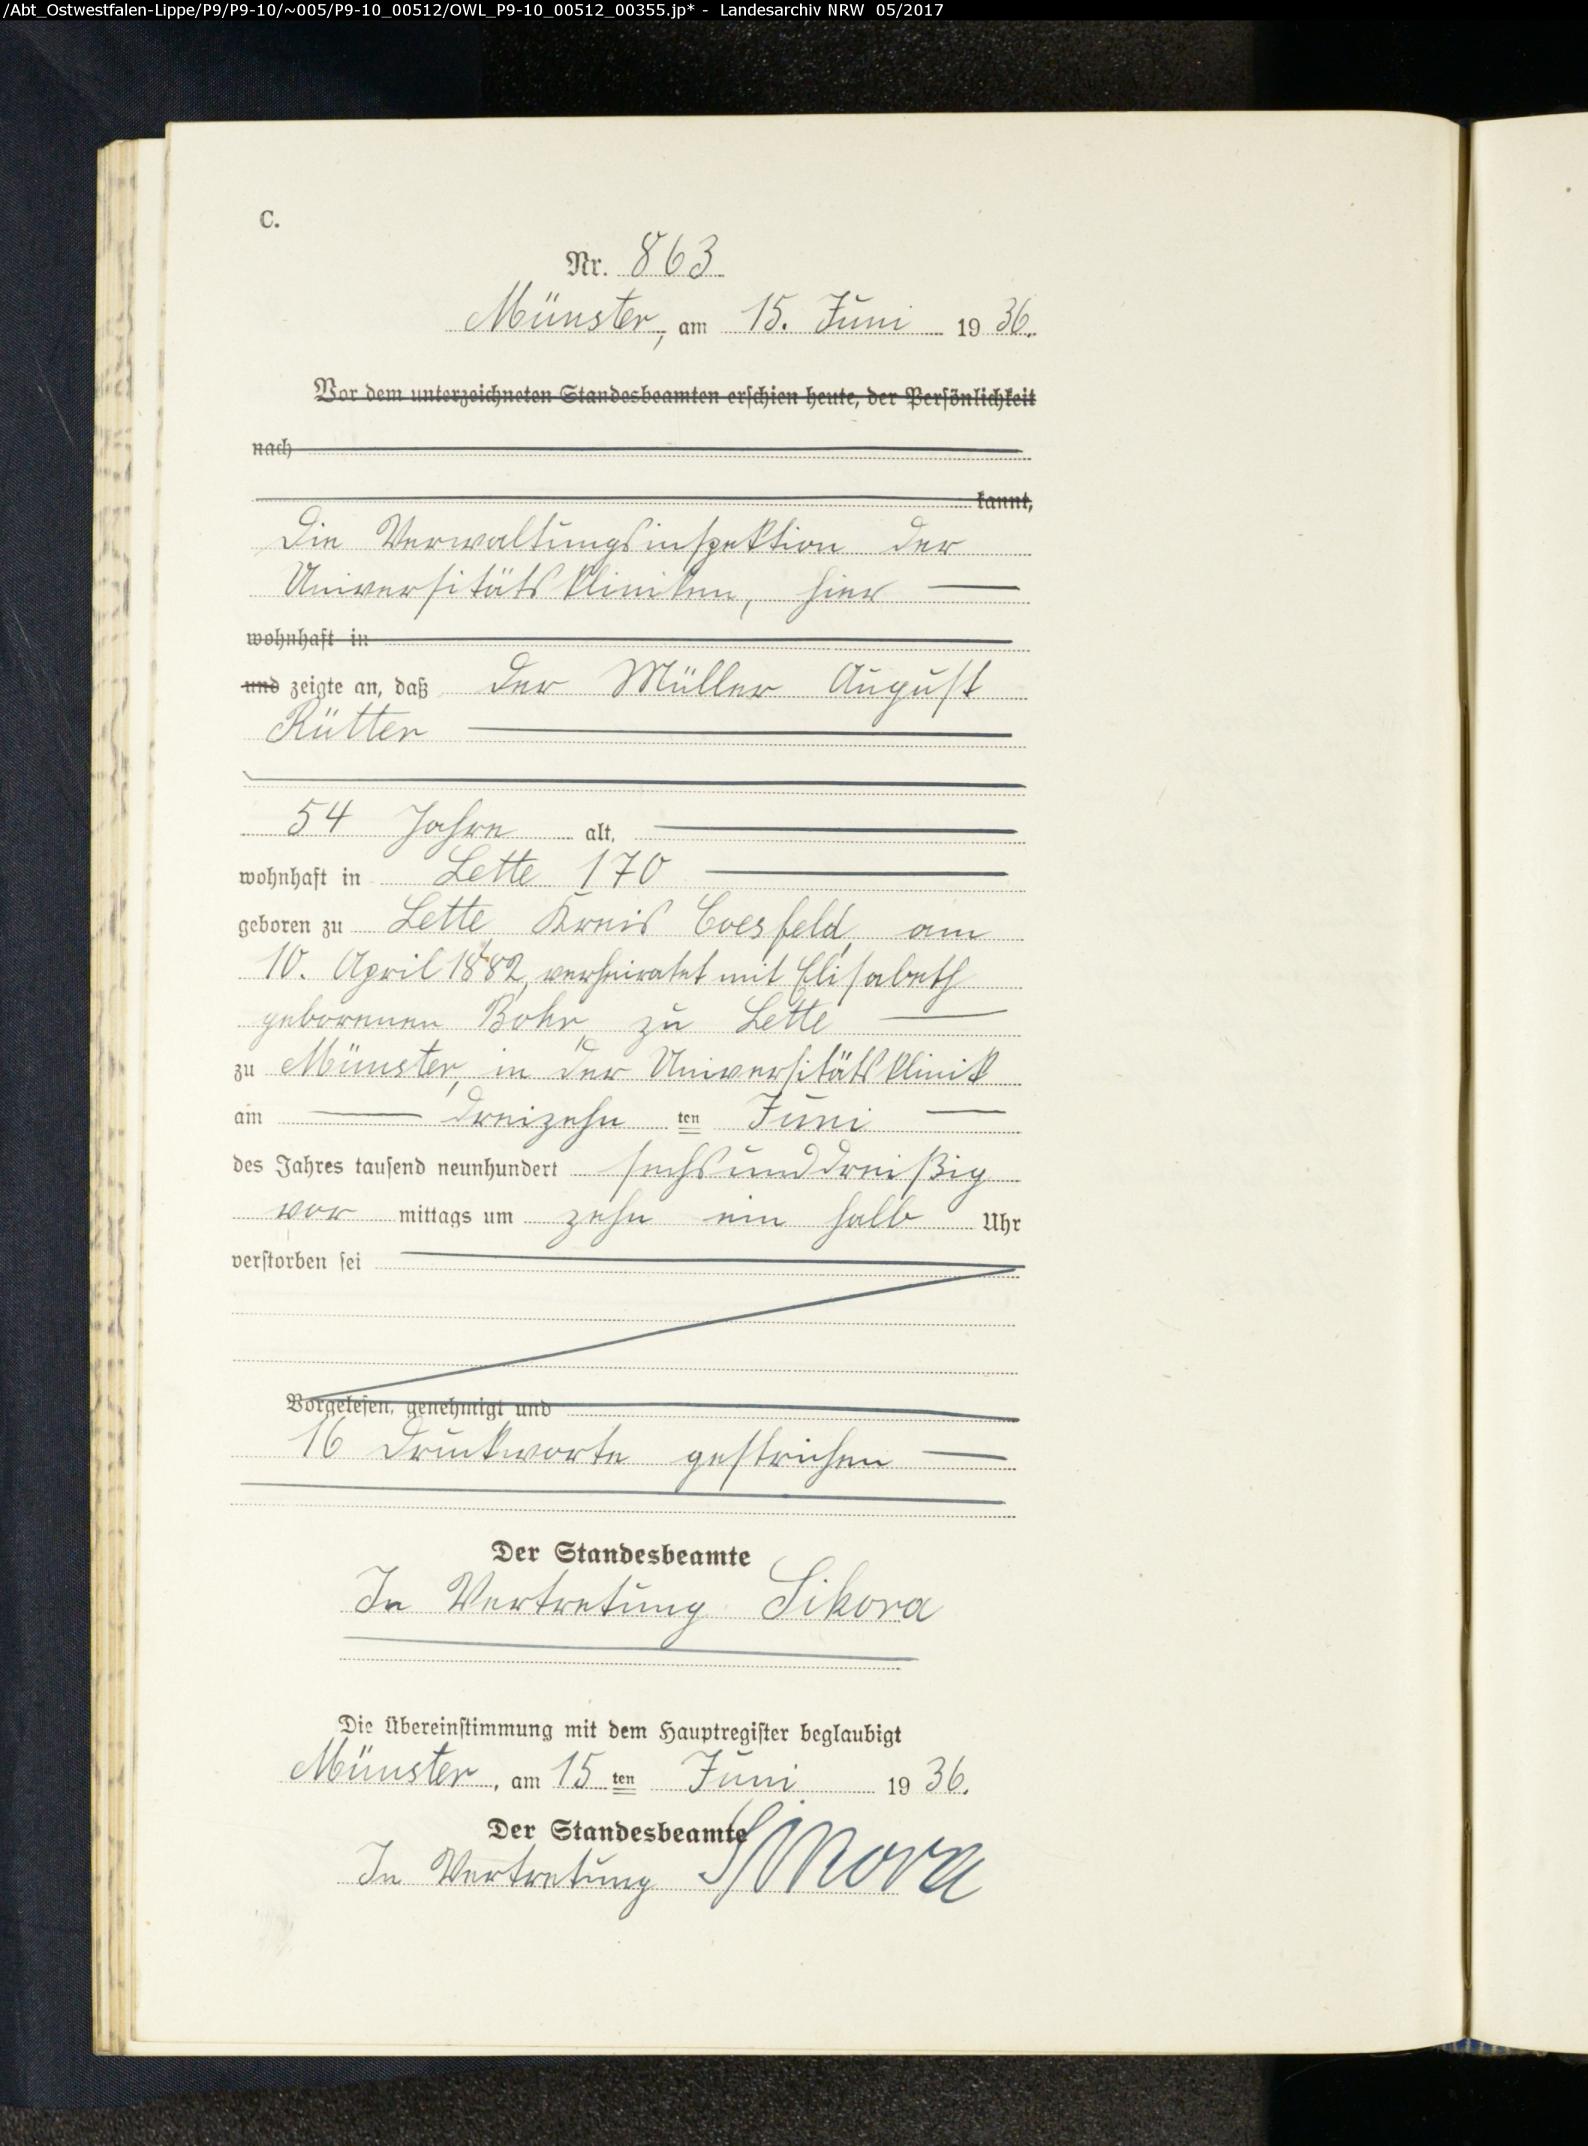 /Abt_Ostwestfalen-Lippe/P9/P9-10/~005/P9-10_00512/OWL_P9-10_00512_00355.jp* - Landesarchiv NRW 05/2017
C.
Nr. 863
Münster, am 15. Juni 1936.
Vor dem unterzeichneten Standesbeamten erschien heute, der Persönlichkeit
nach
kannt,
Die Verwaltungsinspektion der
Universitätskliniken, hier
wohnhaft in
und zeigte an, daß der Müller August
Rütter
54 Jahre alt,
wohnhaft in Lette 170
geboren zu Lette, Kreis Coesfeld, am
10. April 1882, verheiratet mit Elisabeth
geborenen Bohr, zu Lette
zu Münster, in der Universitätsklinik
am dreizehn ten Juni
des Jahres tausend neunhundert sechsunddreißig
vor mittags um zehn ein halb Uhr
verstorben sei
Vorgelesen, genehmigt und
16 Druckworte gestrichen
Der Standesbeamte
In Vertretung Sikora
Die Übereinstimmung mit dem Hauptregister beglaubigt
Münster, am 15 ten Juni 1936.
Der Standesbeamte
In Vertretung Sikora